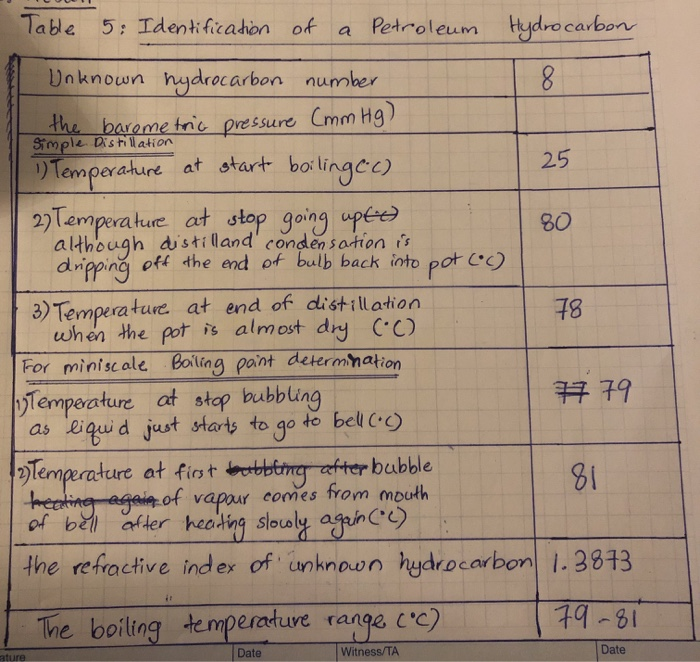 Table 5: Identification of a Petroleum Hydrocarbon
Unknown hydrocarbon number 8
the barometric pressure (mmHg)
Simple Distillation
1) Temperature at start boiling(°C) 25
2) Temperature at stop going up(°C) 80
although distilland condensation is
dripping off the end of bulb back into pot (°C)
3) Temperature at end of distillation 78
when the pot is almost dry (°C)
For miniscale Boiling point determination
1) Temperature at stop bubbling 77 79
as liquid just starts to go to bell (°C)
2) Temperature at first bubbling after bubble 81
heating again of vapour comes from mouth
of bell after heating slowly again (°C)
the refractive index of unknown hydrocarbon 1.3873
The boiling temperature range (°C) 79-81
Date Witness/TA Date